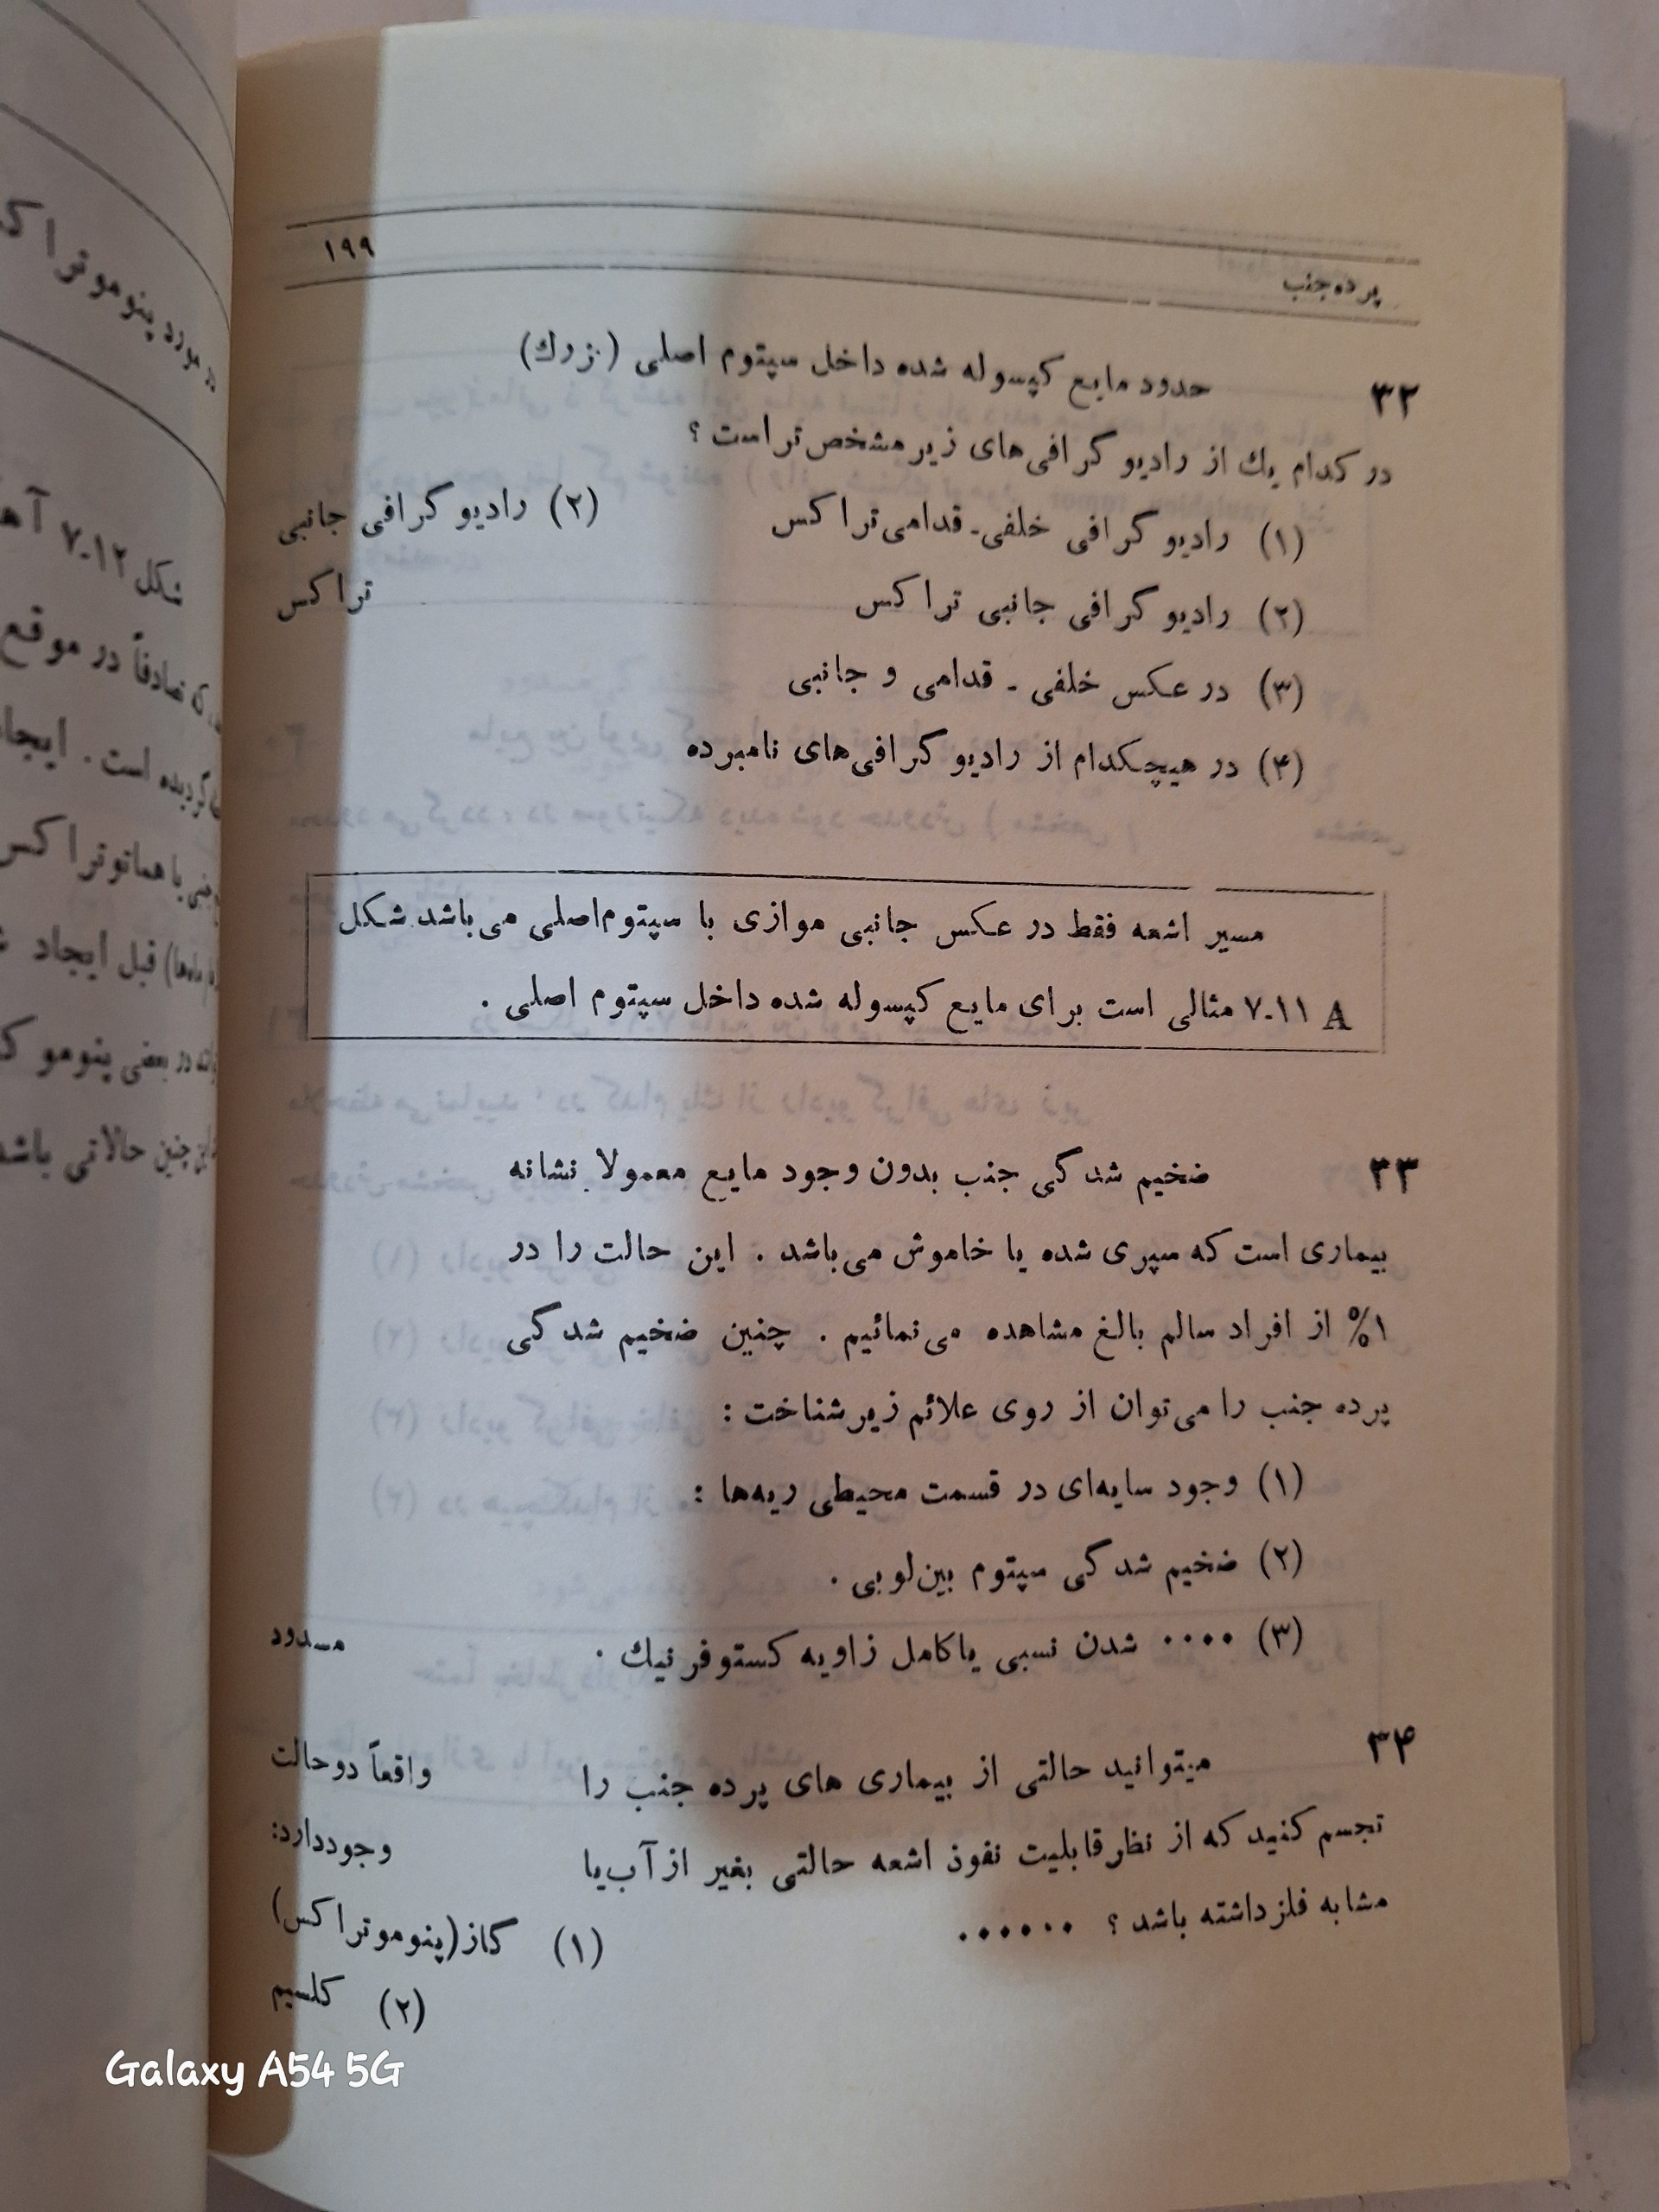 ۱۹۹
پرده جنب
۳۲ حدود مایع کپسوله شده داخل سپتوم اصلی (بزرك)
در کدام یك از رادیو گرافی‌های زیر مشخص‌تر است ؟
(۱) رادیو گرافی خلفی- قدامی‌تراکس
(۲) رادیو گرافی جانبی تراکس
(۳) در عکس خلفی - قدامی و جانبی
(۴) در هیچکدام از رادیو گرافی‌های نامبرده
(۲) رادیو گرافی جانبی
تراکس
مسیر اشعه فقط در عکس جانبی موازی با سپتوم‌اصلی می‌باشد. شکل
۷-۱۱ A مثالی است برای مایع کپسوله شده داخل سپتوم اصلی .
۳۳ ضخیم شدگی جنب بدون وجود مایع معمولا نشانه
بیماری است که سپری شده یا خاموش می‌باشد . این حالت را در
۱% از افراد سالم بالغ مشاهده می‌نمائیم . چنین ضخیم شدگی
پرده جنب را می‌توان از روی علائم زیر شناخت :
(۱) وجود سایه‌ای در قسمت محیطی ریه‌ها :
(۲) ضخیم شدگی سپتوم بین‌لوبی .
(۳) .... شدن نسبی یا کامل زاویه کستوفرنیك .
مسدود
۳۴ میتوانید حالتی از بیماری های پرده جنب را
تجسم کنید که از نظر قابلیت نفوذ اشعه حالتی بغیر از آب یا
مشابه فلز داشته باشد ؟ ......
واقعاً دو حالت
وجود دارد:
(۱) گاز (پنوموتراکس)
(۲) کلسیم
مورد پنوموتراک
شکل ۷-۱۲ آ
تصادفاً در موقع
گردیده است . ایجا
با هماتوتراکس
قبل ایجاد
در بعضی پنومو
چنین حالاتی باشد
Galaxy A54 5G